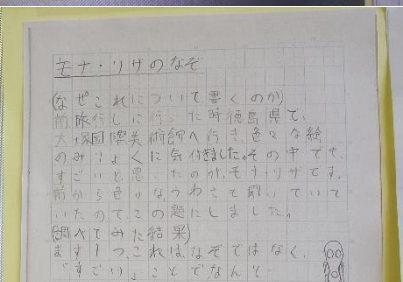 モナ・リサのなぞ
(なぜこれについて書くのか)
前旅行しに行った時徳島県で、
大塚国際美術館へ行き、色々な絵
のみりょくに気付きました。その中でも、
すごいと思ったのが、モナリサです。
前から色々なうわさを聞いていて
いたので、この題にしました。
(調べてみた結果)
まず1つ、これは、なぞではなく、
「すごい」ことでなんと